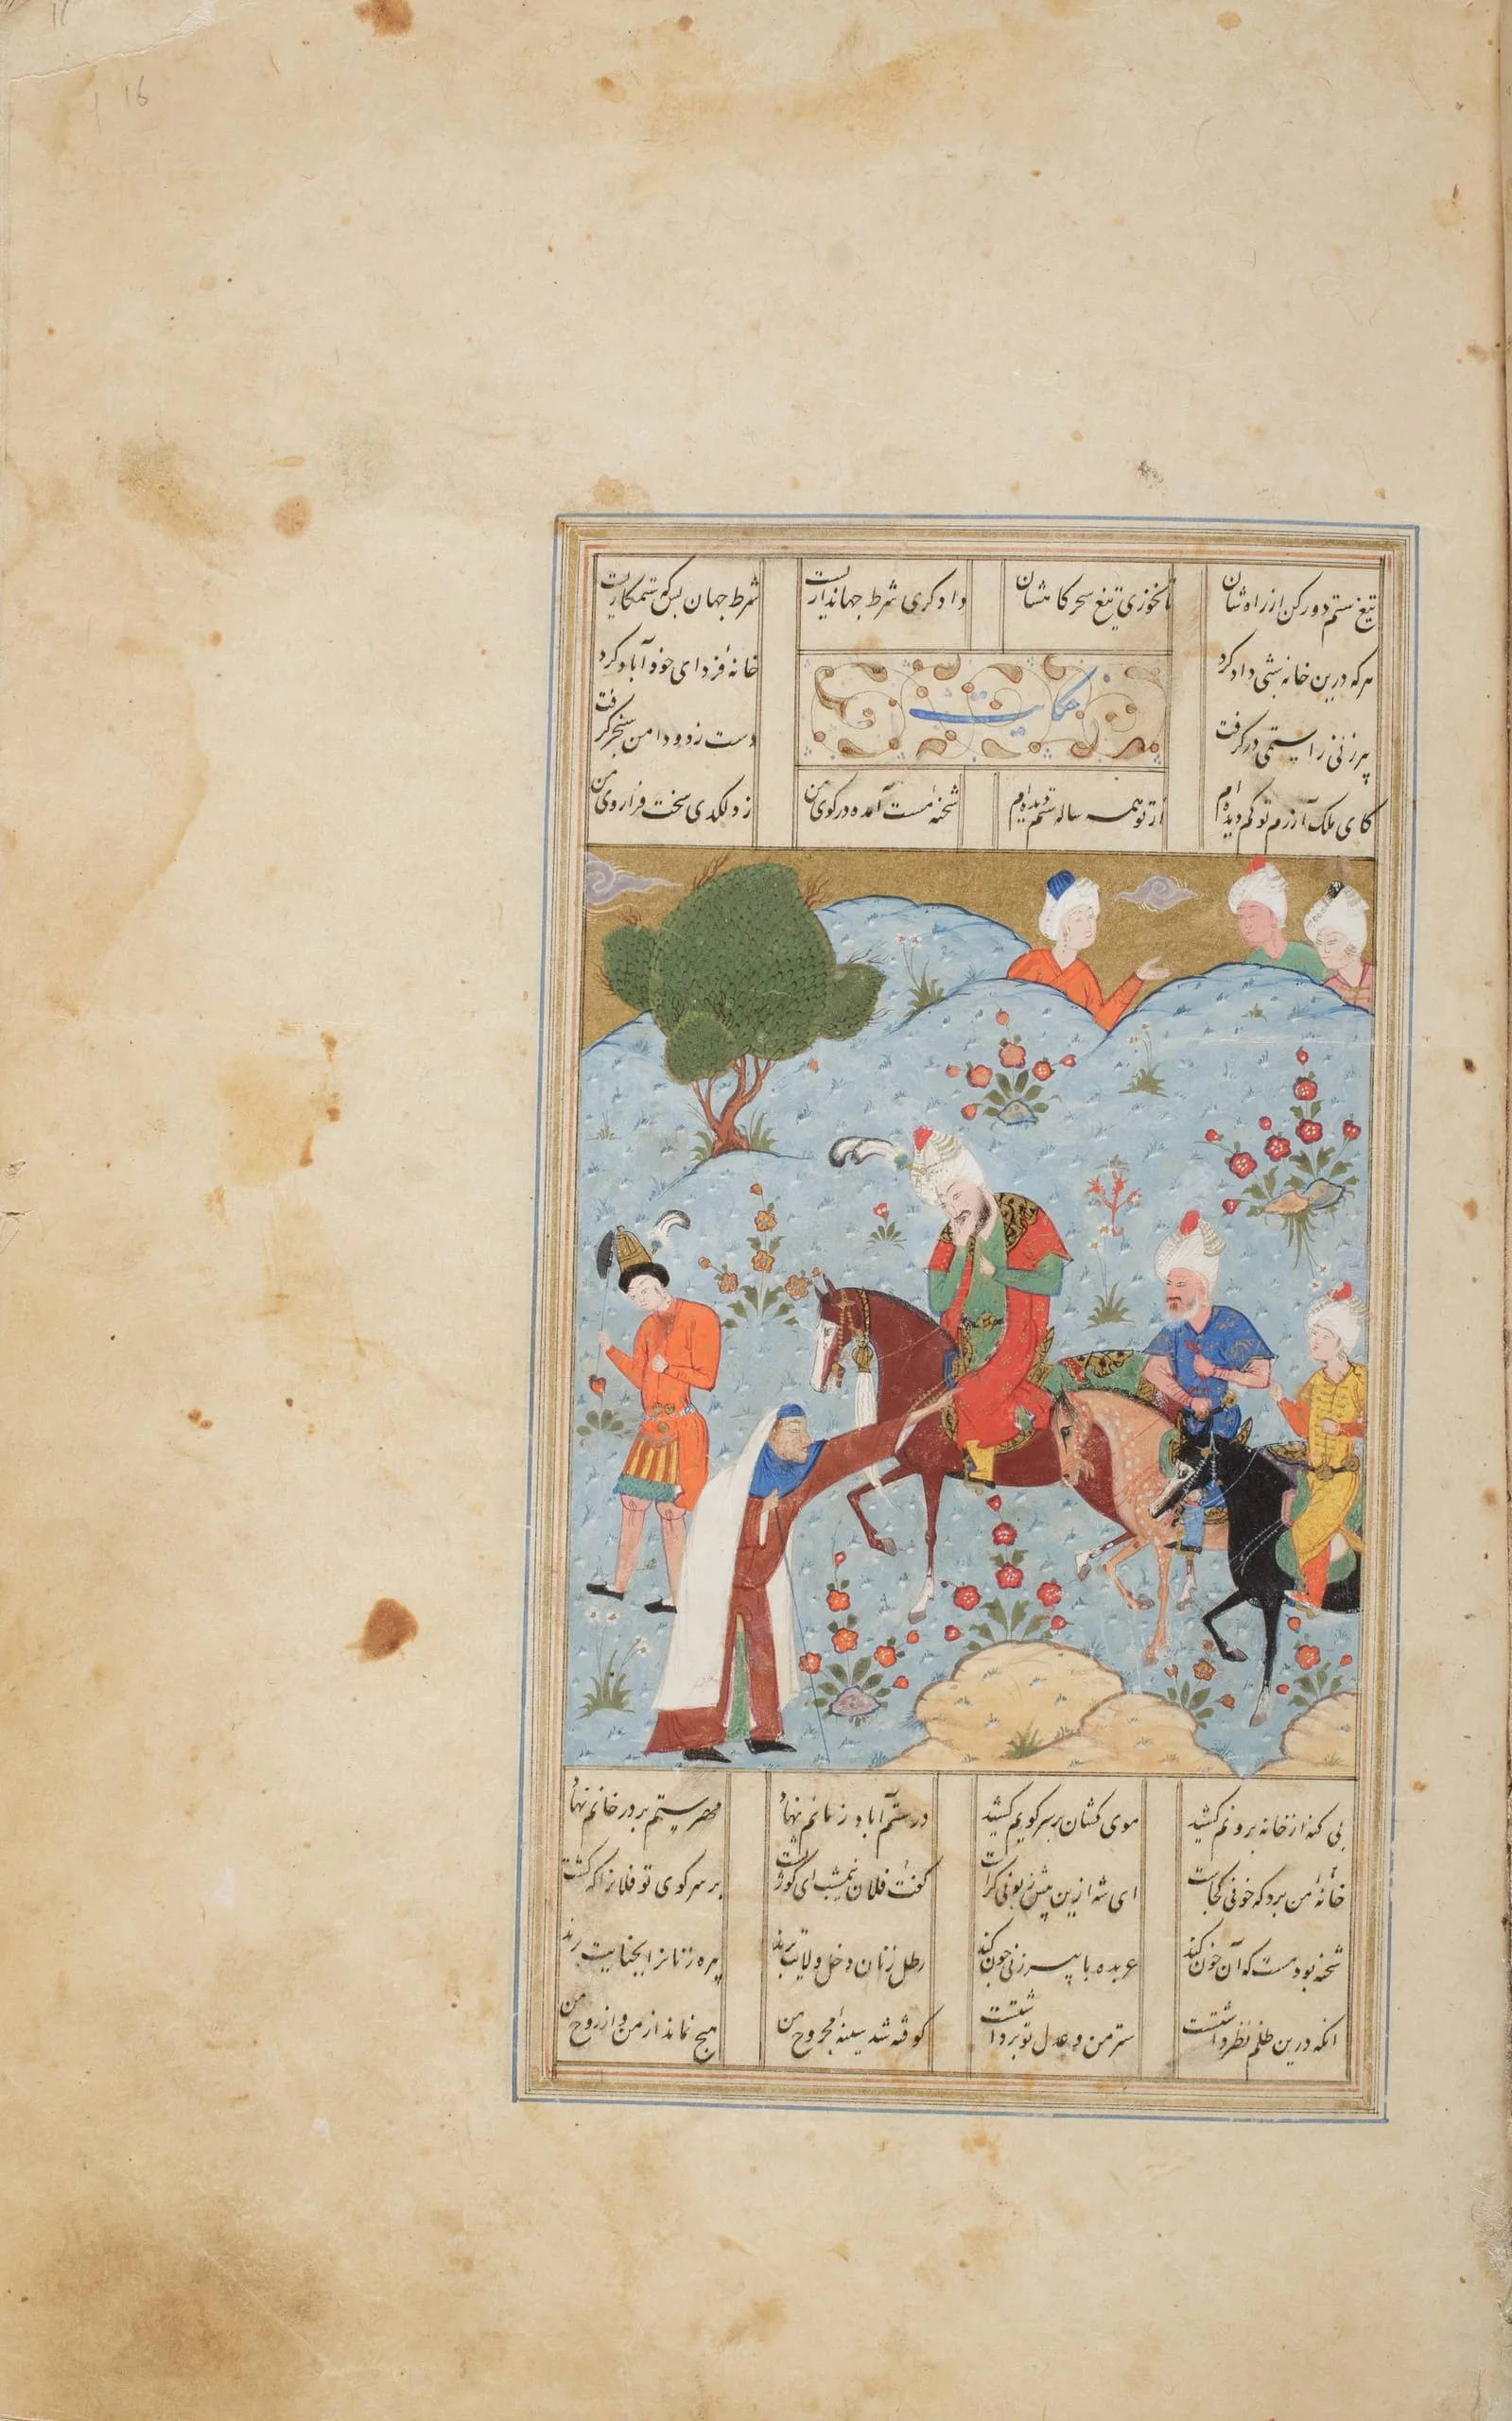 16
تیغ ستم دور کن از راه شان تا نخوری تیغ سحرکاهشان دادکری شرط جهانداریست شرط جهان بین که ستمکاریست
هر که درین خانه شبی داد کرد خانهٔ فردای خود آباد کرد
حکایت
پیرزنی را ستمی درکرفت دست زد و دامن سنجر کرفت
کای ملک آزرم تو کم دیده ام از تو همه ساله ستم دیده ام شحنهٔ مست آمده در کوی من زد لکدی سخت فرا روی من
بی کنه از خانه برونم کشید موی کشان بر سر کویم کشید در ستم آباد زبانم نهاد مهر ستم بر در خانم نهاد
خانهٔ من برد که خونی کجاست ای شه ازین بیش زبونی کراست کفت فلان نیمشب ای کوژپشت بر سر کوی تو فلانرا که کشت
شحنه بود مست که آن خون کند عربده با پیرزنی چون کند رطل زنان دخل ولایت برند پیره زنانرا بجنایت برند
انکه درین ظلم نظر داشتست ستر من و عدل تو برداشتست کوفته شد سینهٔ مجروح من هیچ نماند از من و از روح من